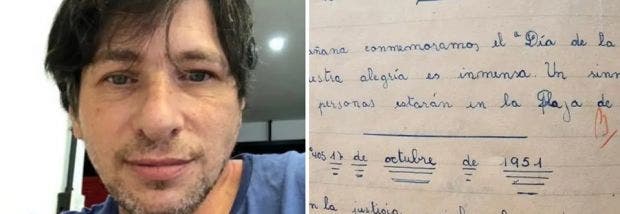 añana conmemoramos el "Día de la
estra alegría es inmensa. Un sinn
personas estarán en la Plaza de
17 de octubre de 1951
n la justicia